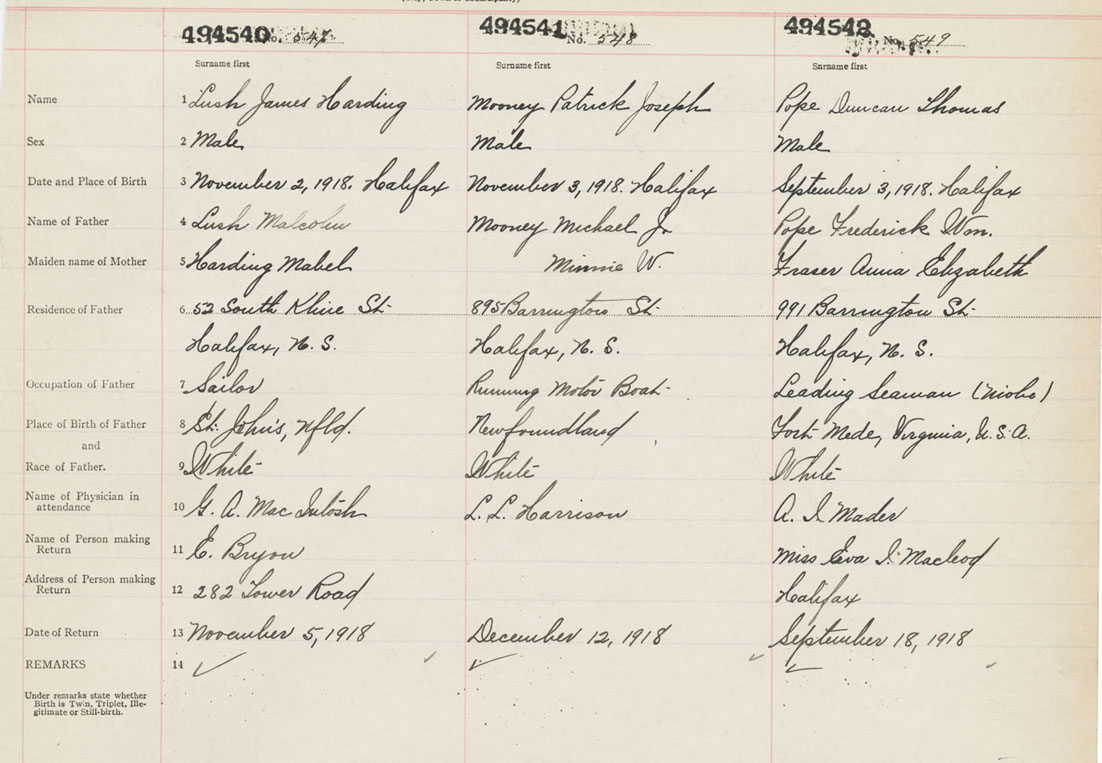 494540 No. 547 494541 No. 548 494542 No. 549
Surname first Surname first Surname first
Name 1 Lush James Harding Mooney Patrick Joseph Pope Duncan Thomas
Sex 2 Male Male Male
Date and Place of Birth 3 November 2, 1918. Halifax November 3, 1918. Halifax September 3, 1918. Halifax
Name of Father 4 Lush Malcolm Mooney Michael Jr Pope Frederick Wm.
Maiden name of Mother 5 Harding Mabel Minnie W. Fraser Anna Elizabeth
Residence of Father 6 52 South Kline St. 895 Barrington St. 991 Barrington St.
Halifax, N. S. Halifax, N. S. Halifax, N. S.
Occupation of Father 7 Sailor Running Motor Boat Leading Seaman (Niobe)
Place of Birth of Father 8 St. John's, Nfld. Newfoundland Fort Mede, Virginia, U.S.A.
and
Race of Father. 9 White White White
Name of Physician in
attendance 10 G. A. MacIntosh L. L. Harrison A. I. Mader
Name of Person making
Return 11 E. Bryon Miss Eva I. Macleod
Address of Person making
Return 12 282 Tower Road Halifax
Date of Return 13 November 5, 1918 December 12, 1918 September 18, 1918
REMARKS 14
Under remarks state whether
Birth is Twin, Triplet, Ille-
gitimate or Still-birth.